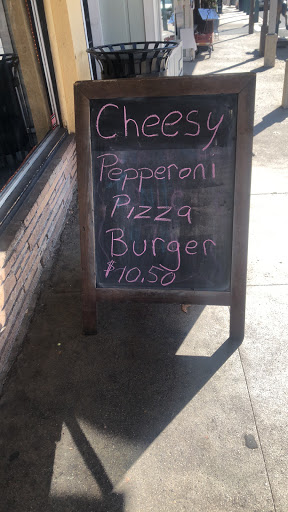 Cheesy
Pepperoni
Pizza
Burger
$10.50